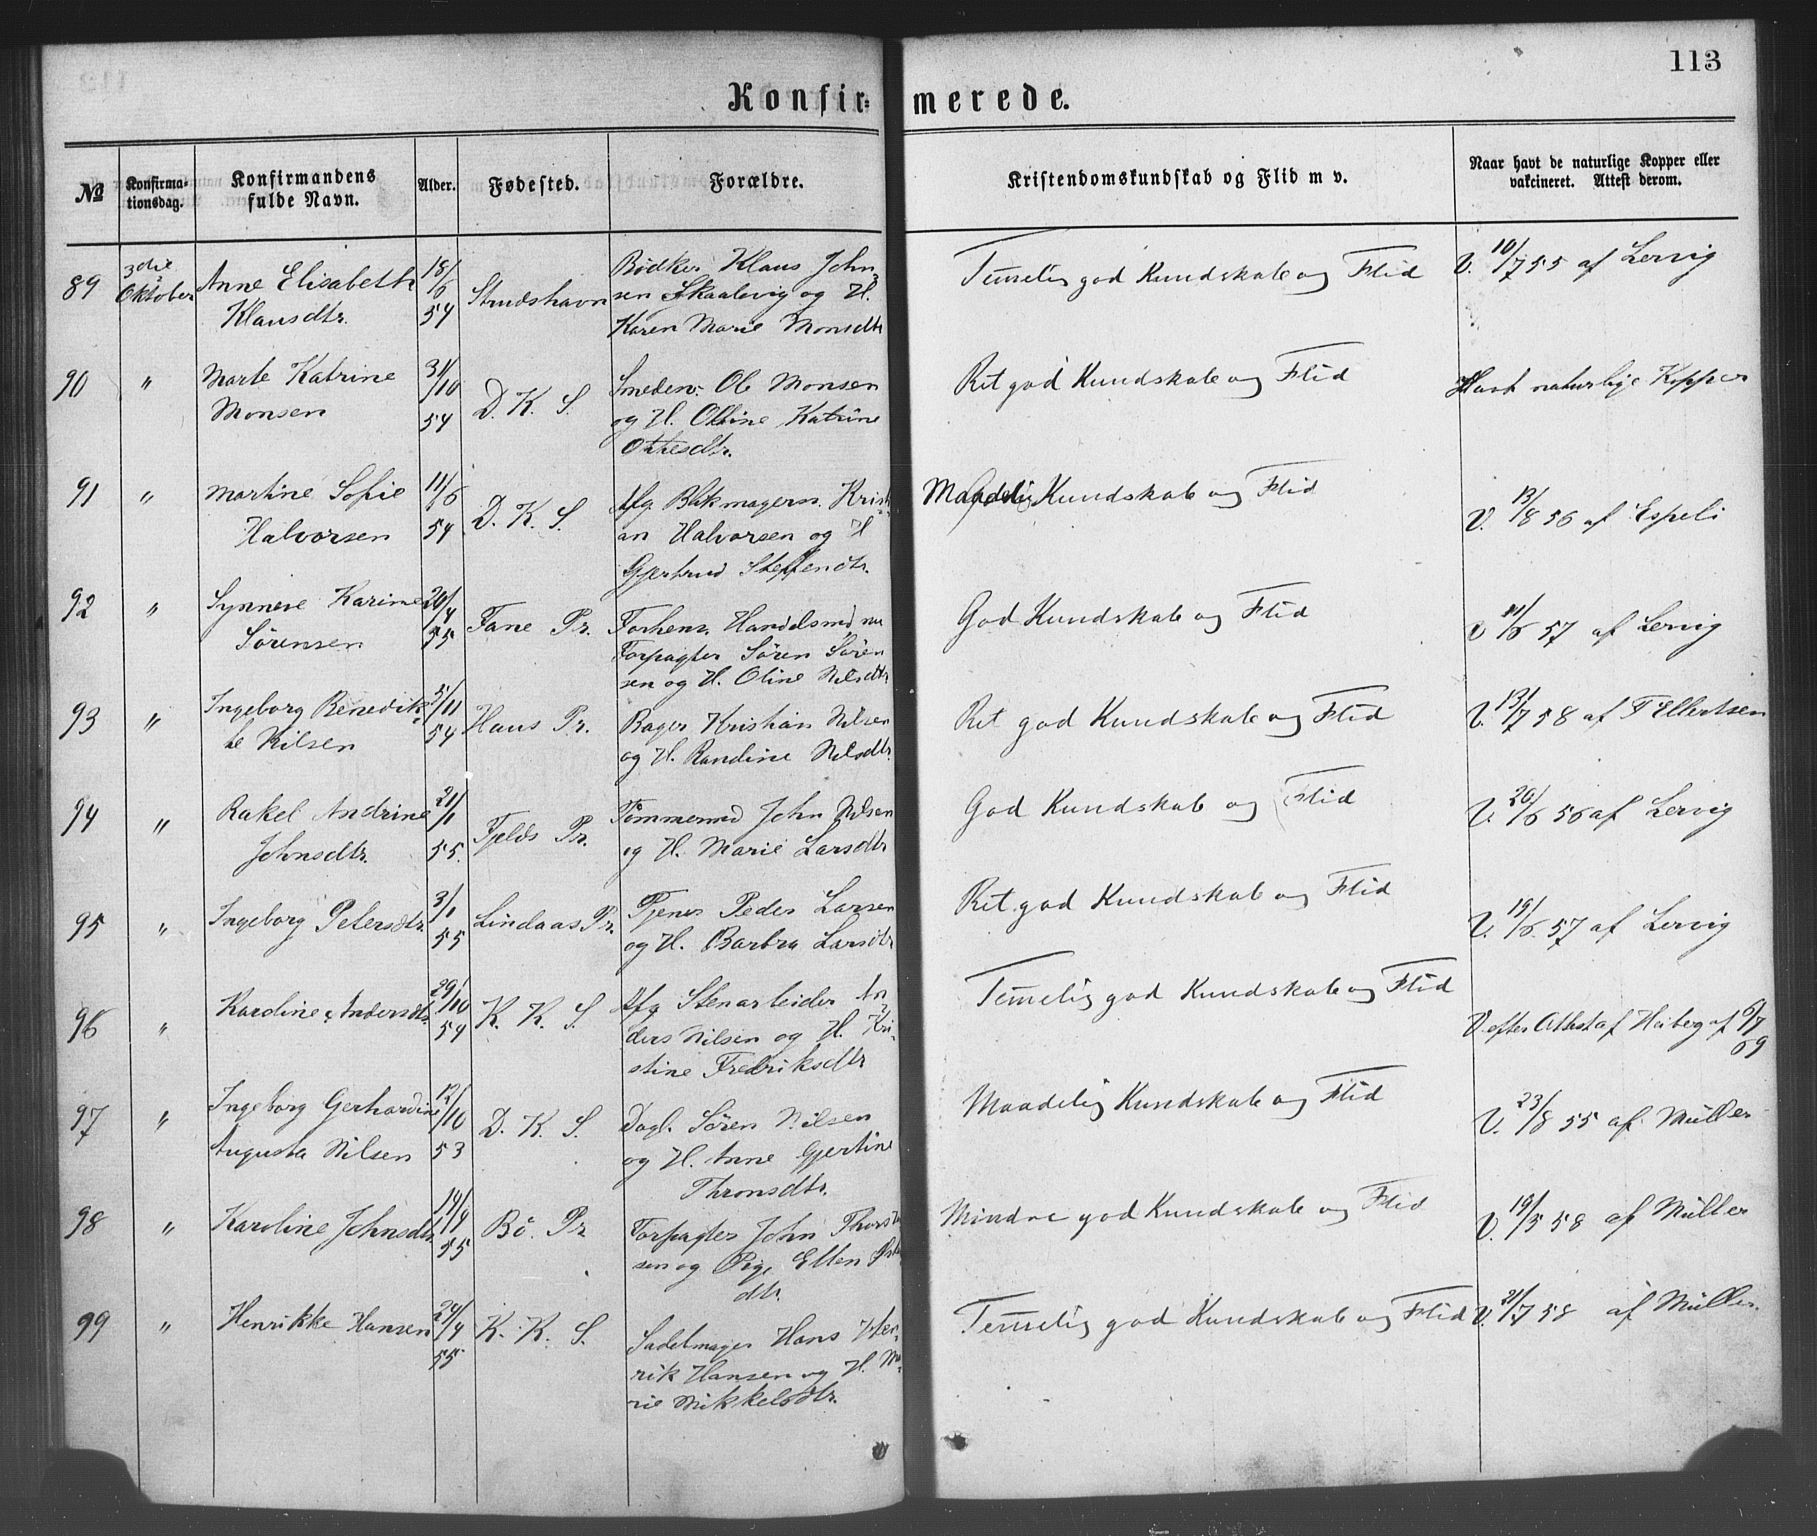 113
Konfir- merede.
No Konfirma-tionsdag. Konfirmandens fulde Navn. Alder. Fødested. Forældre. Kristendomskundskab og Flid m v. Naar havt de naturlige Kopper eller vakcineret. Attest derom.
89 3die Oktober Anne Elisabeth 18/6 Strudshavn Bødker Klaus John- Temelig god Kundskab og Flid V. 10/7 55 af Lervig
Klausdtr. 54 sen Skaalevig og H.
Karen Marie Monsdtr
90 " Marte Katrine 31/10 D. K. S. Smedsv. Ole Monsen Ret god Kundskab og Flid Havt naturlige Kopper
Monsen 54 og H. Oline Katrine
Ottesdtr.
91 " Martine Sofie 11/6 D. K. S. Afg. Blikmagersv. Kristi- Maadelig Kundskab og Flid V. 13/8 56 af Espeli
Halvorsen 54 an Halvorsen og H
Gjertrud Steffendtr.
92 " Synneve Karine 20/4 Fane Pr. Forhenv. Handelsmd nu God Kundskab og Flid V 11/6 57 af Lervig
Sørensen 55 Forpagter Søren Søren
sen og H. Oline Nilsdtr
93 " Ingeborg Benedik- 5/11 Haus Pr. Bager Kristian Nilsen Ret god Kundskab og Flid V. 13/7 58 af T Ellertsen
te Nilsen 54 og H. Randine Nilsdtr.
94 " Rakel Andrine 21/1 Fjelds Pr. Tømmermd John Nilsen God Kundskab og Flid V. 20/6 56 af Lervig
Johnsdtr. 55. og H. Marie Larsdtr
95 " Ingeborg Petersdtr. 3/1 Lindaas Pr. Tjener Peder Larsen Ret god Kundskab og Flid V. 19/6. 57 af Lervig
55 og H. Barbra Larsdtr
96 " Karoline Andersdtr. 29/10 K. K. S. Afg Stenarbeider An- Temelig god Kundskab og Flid V. efter Attest af Heiberg af 6/7 69
54 ders Nilsen og H. Kri-
stine Fredriksdtr
97 " Ingeborg Gerhardine 12/10 D. K. S. Dagl. Søren Nilsen Maadelig Kundskab og Flid V. 23/8 55 af Müller
Augusta Nilsen 53 og H. Anne Gjertine
Thronsdtr.
98 " Karoline Johnsdtr 14/4 Bø Pr Forpagter John Mindre god Kundskab og Flid V. 19/5 58 af Müller
55 sen og Pige Ellen
dtr.
99 " Henrikke Hansen 24/4 K. K. S. Sadelmager Hans Hen- Temelig god Kundskab og Flid V. 21/7 58 af Müller.
55 rik Hansen og H. Ma-
rie Mikkelsdtr.